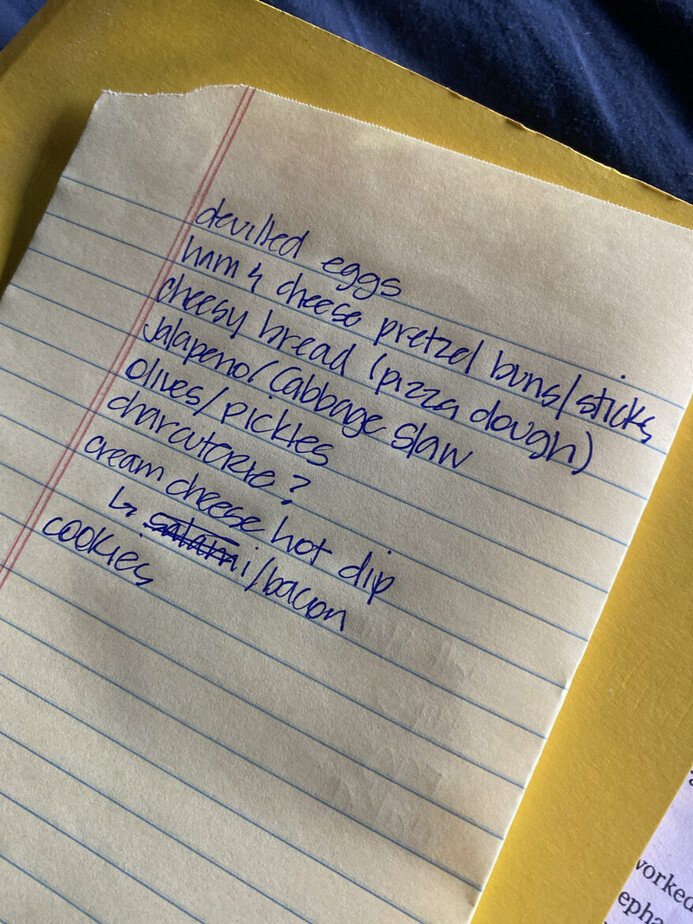 devilled eggs
ham & cheese pretzel buns/sticks
cheesy bread (pizza dough)
Jalapeno/Cabbage Slaw
Olives/pickles
charcuterie?
cream cheese hot dip
↳ salami/bacon
cookies
worked
epha